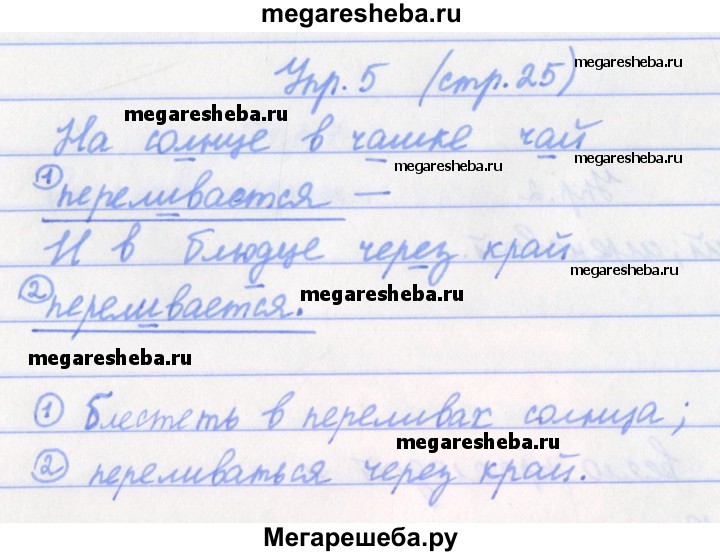 megaresheba.ru
Упр. 5 (стр. 25) megaresheba.ru
megaresheba.ru
На солнце в чашке чай
megaresheba.ru megaresheba.ru
① переливается —
И в блюдце через край
megaresheba.ru
② переливается. megaresheba.ru
megaresheba.ru
① Блестеть в переливах солнца;
megaresheba.ru
② переливаться через край.
Мегарешеба.ру